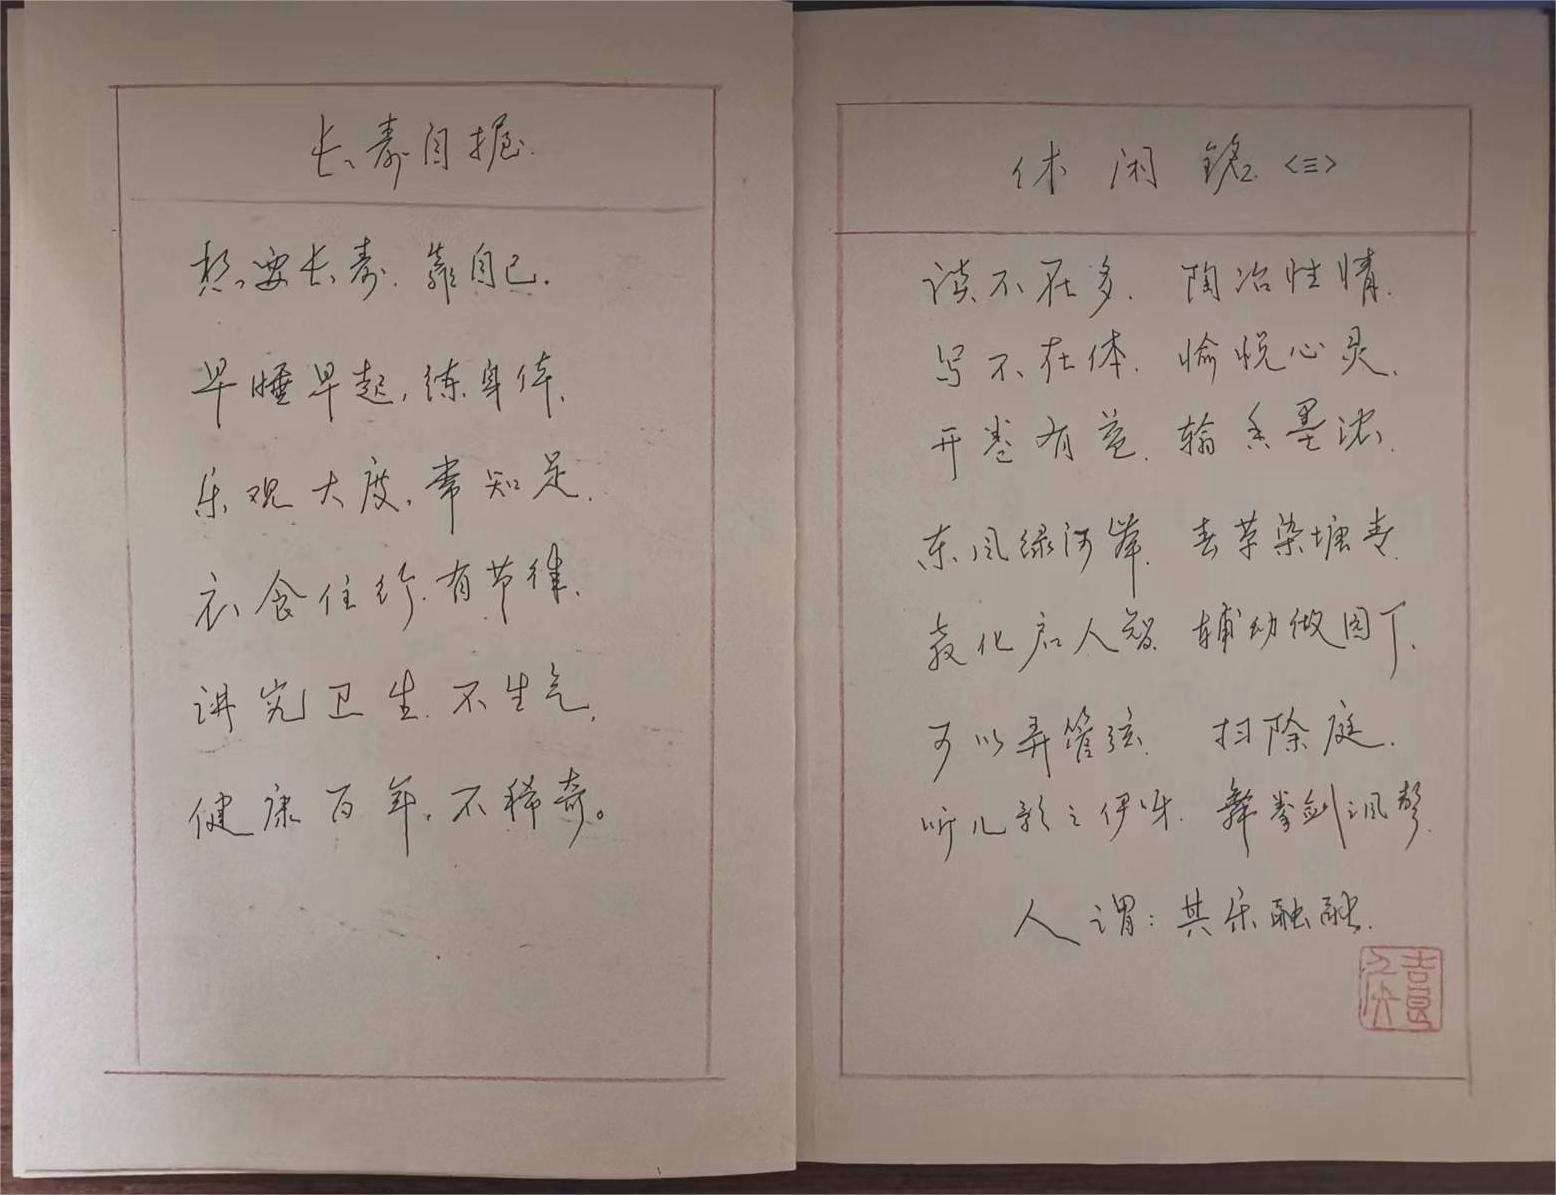 长寿自握.
想要长寿.靠自己.
早睡早起,练身体.
乐观大度,常知足.
衣食住行.有节律.
讲究卫生.不生气,
健康百年,不稀奇。
休闲铭<三>
读不在多.陶冶性情.
写不在体.愉悦心灵.
开卷有益.翰香墨浓.
东风绿河岸.春草染塘青.
教化启人智.辅幼做园丁.
可以弄管弦.扫除庭.
听儿歌之伊呀.舞拳剑讽声.
人谓:其乐融融.
吉昌